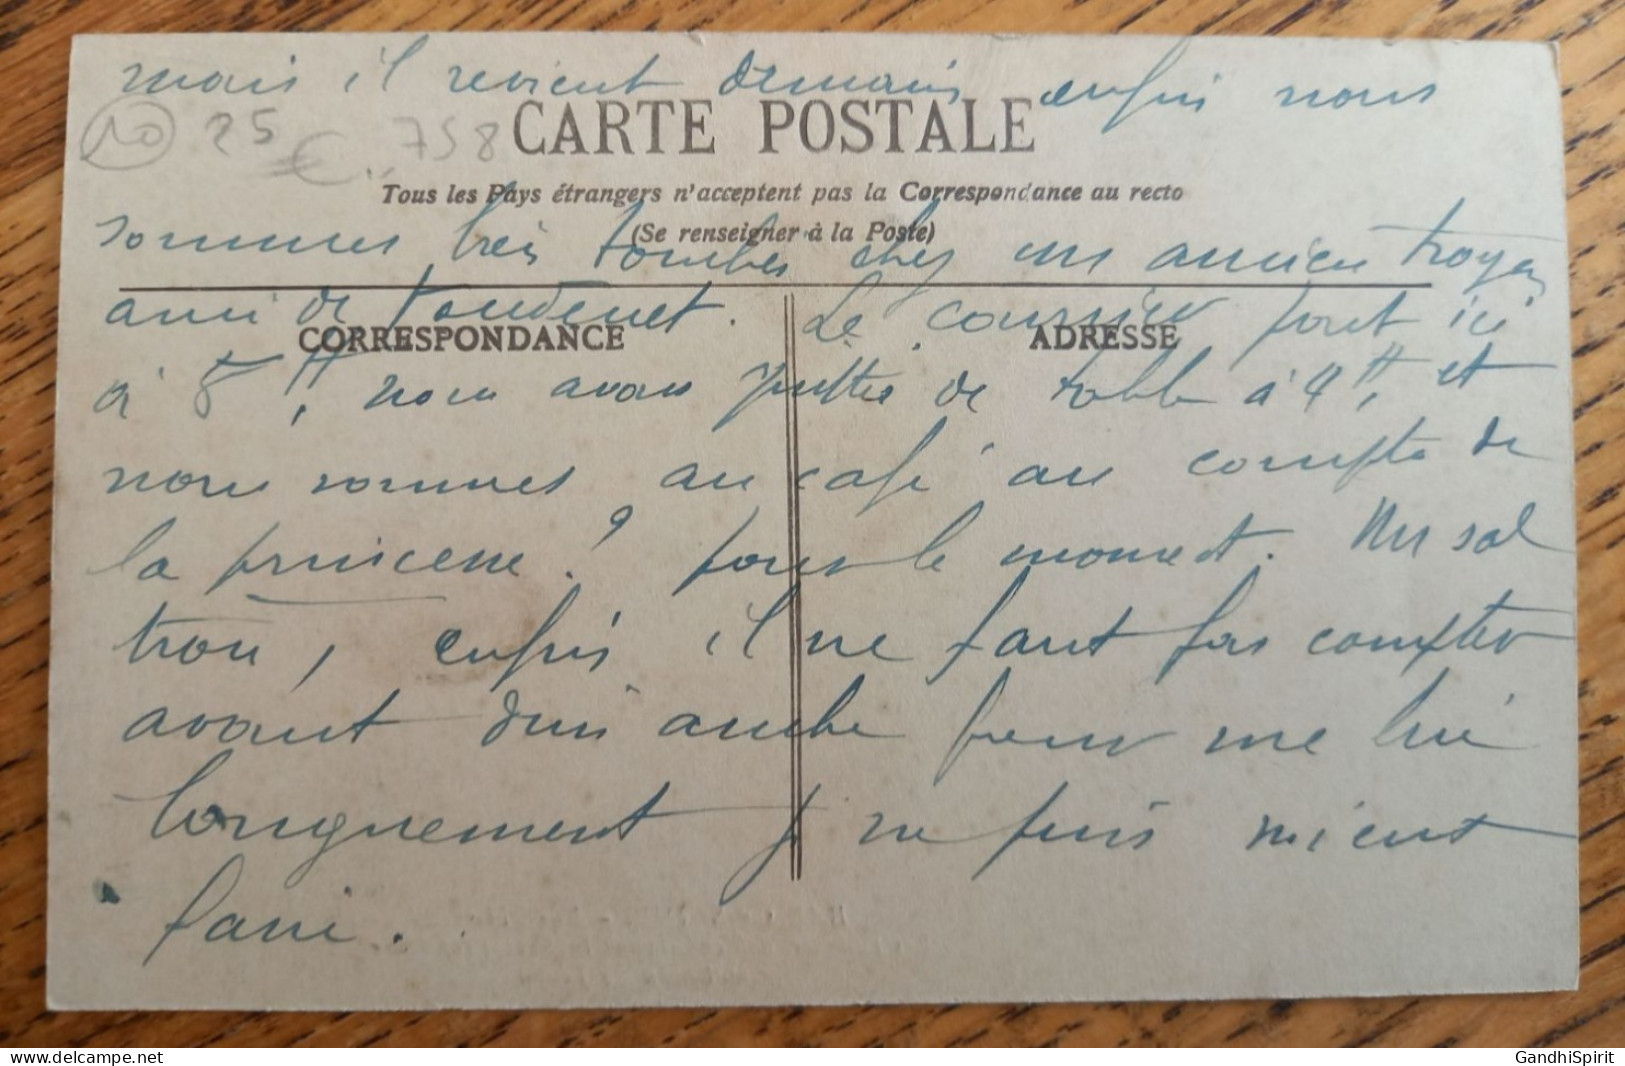 mais il revient demain enfin nous
20 25 € 758
CARTE POSTALE
Tous les Pays étrangers n'acceptent pas la Correspondance au recto
(Se renseigner à la Poste)
sommes très tombés chez un ancien troyen
ami de . Le courrier part ici
CORRESPONDANCE ADRESSE
à 5 H, nous avons quitté de table à 4 H, et
nous sommes au café au compte de
la princesse ? pour le moment. Un sol
trou, enfin il ne faut pas compter
avant dimanche pour me lire
longuement je ne puis mieux
faire.
GandhiSpirit
www.delcampe.net